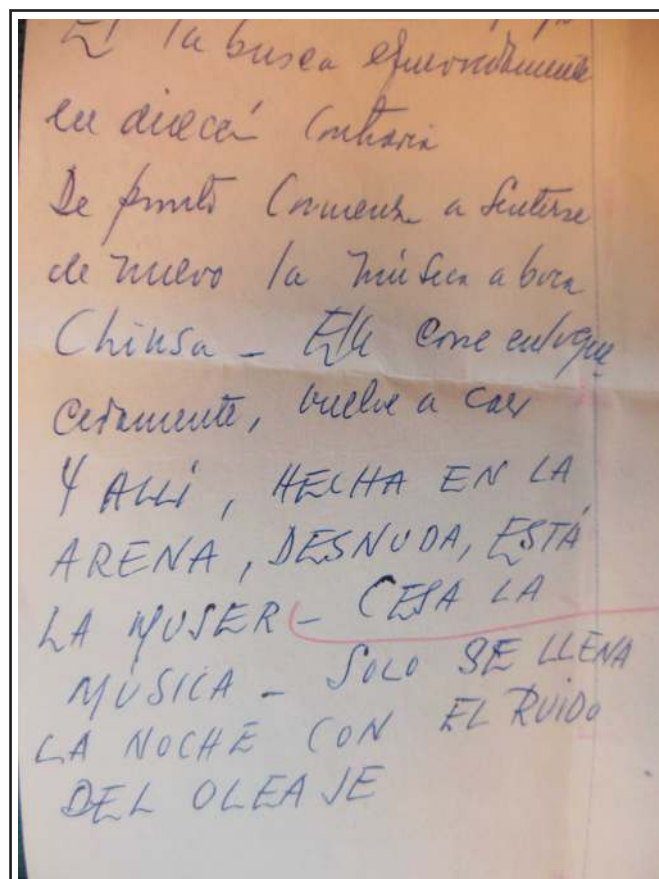 El la busca
en dirección contraria
De pronto comienza a sentirse
de nuevo la música a boca
Chiusa - Ella corre enloque
cidamente, vuelve a caer
Y ALLÍ, HECHA EN LA
ARENA, DESNUDA, ESTÁ
LA MUJER - CESA LA
MÚSICA - SOLO SE LLENA
LA NOCHE CON EL RUIDO
DEL OLEAJE